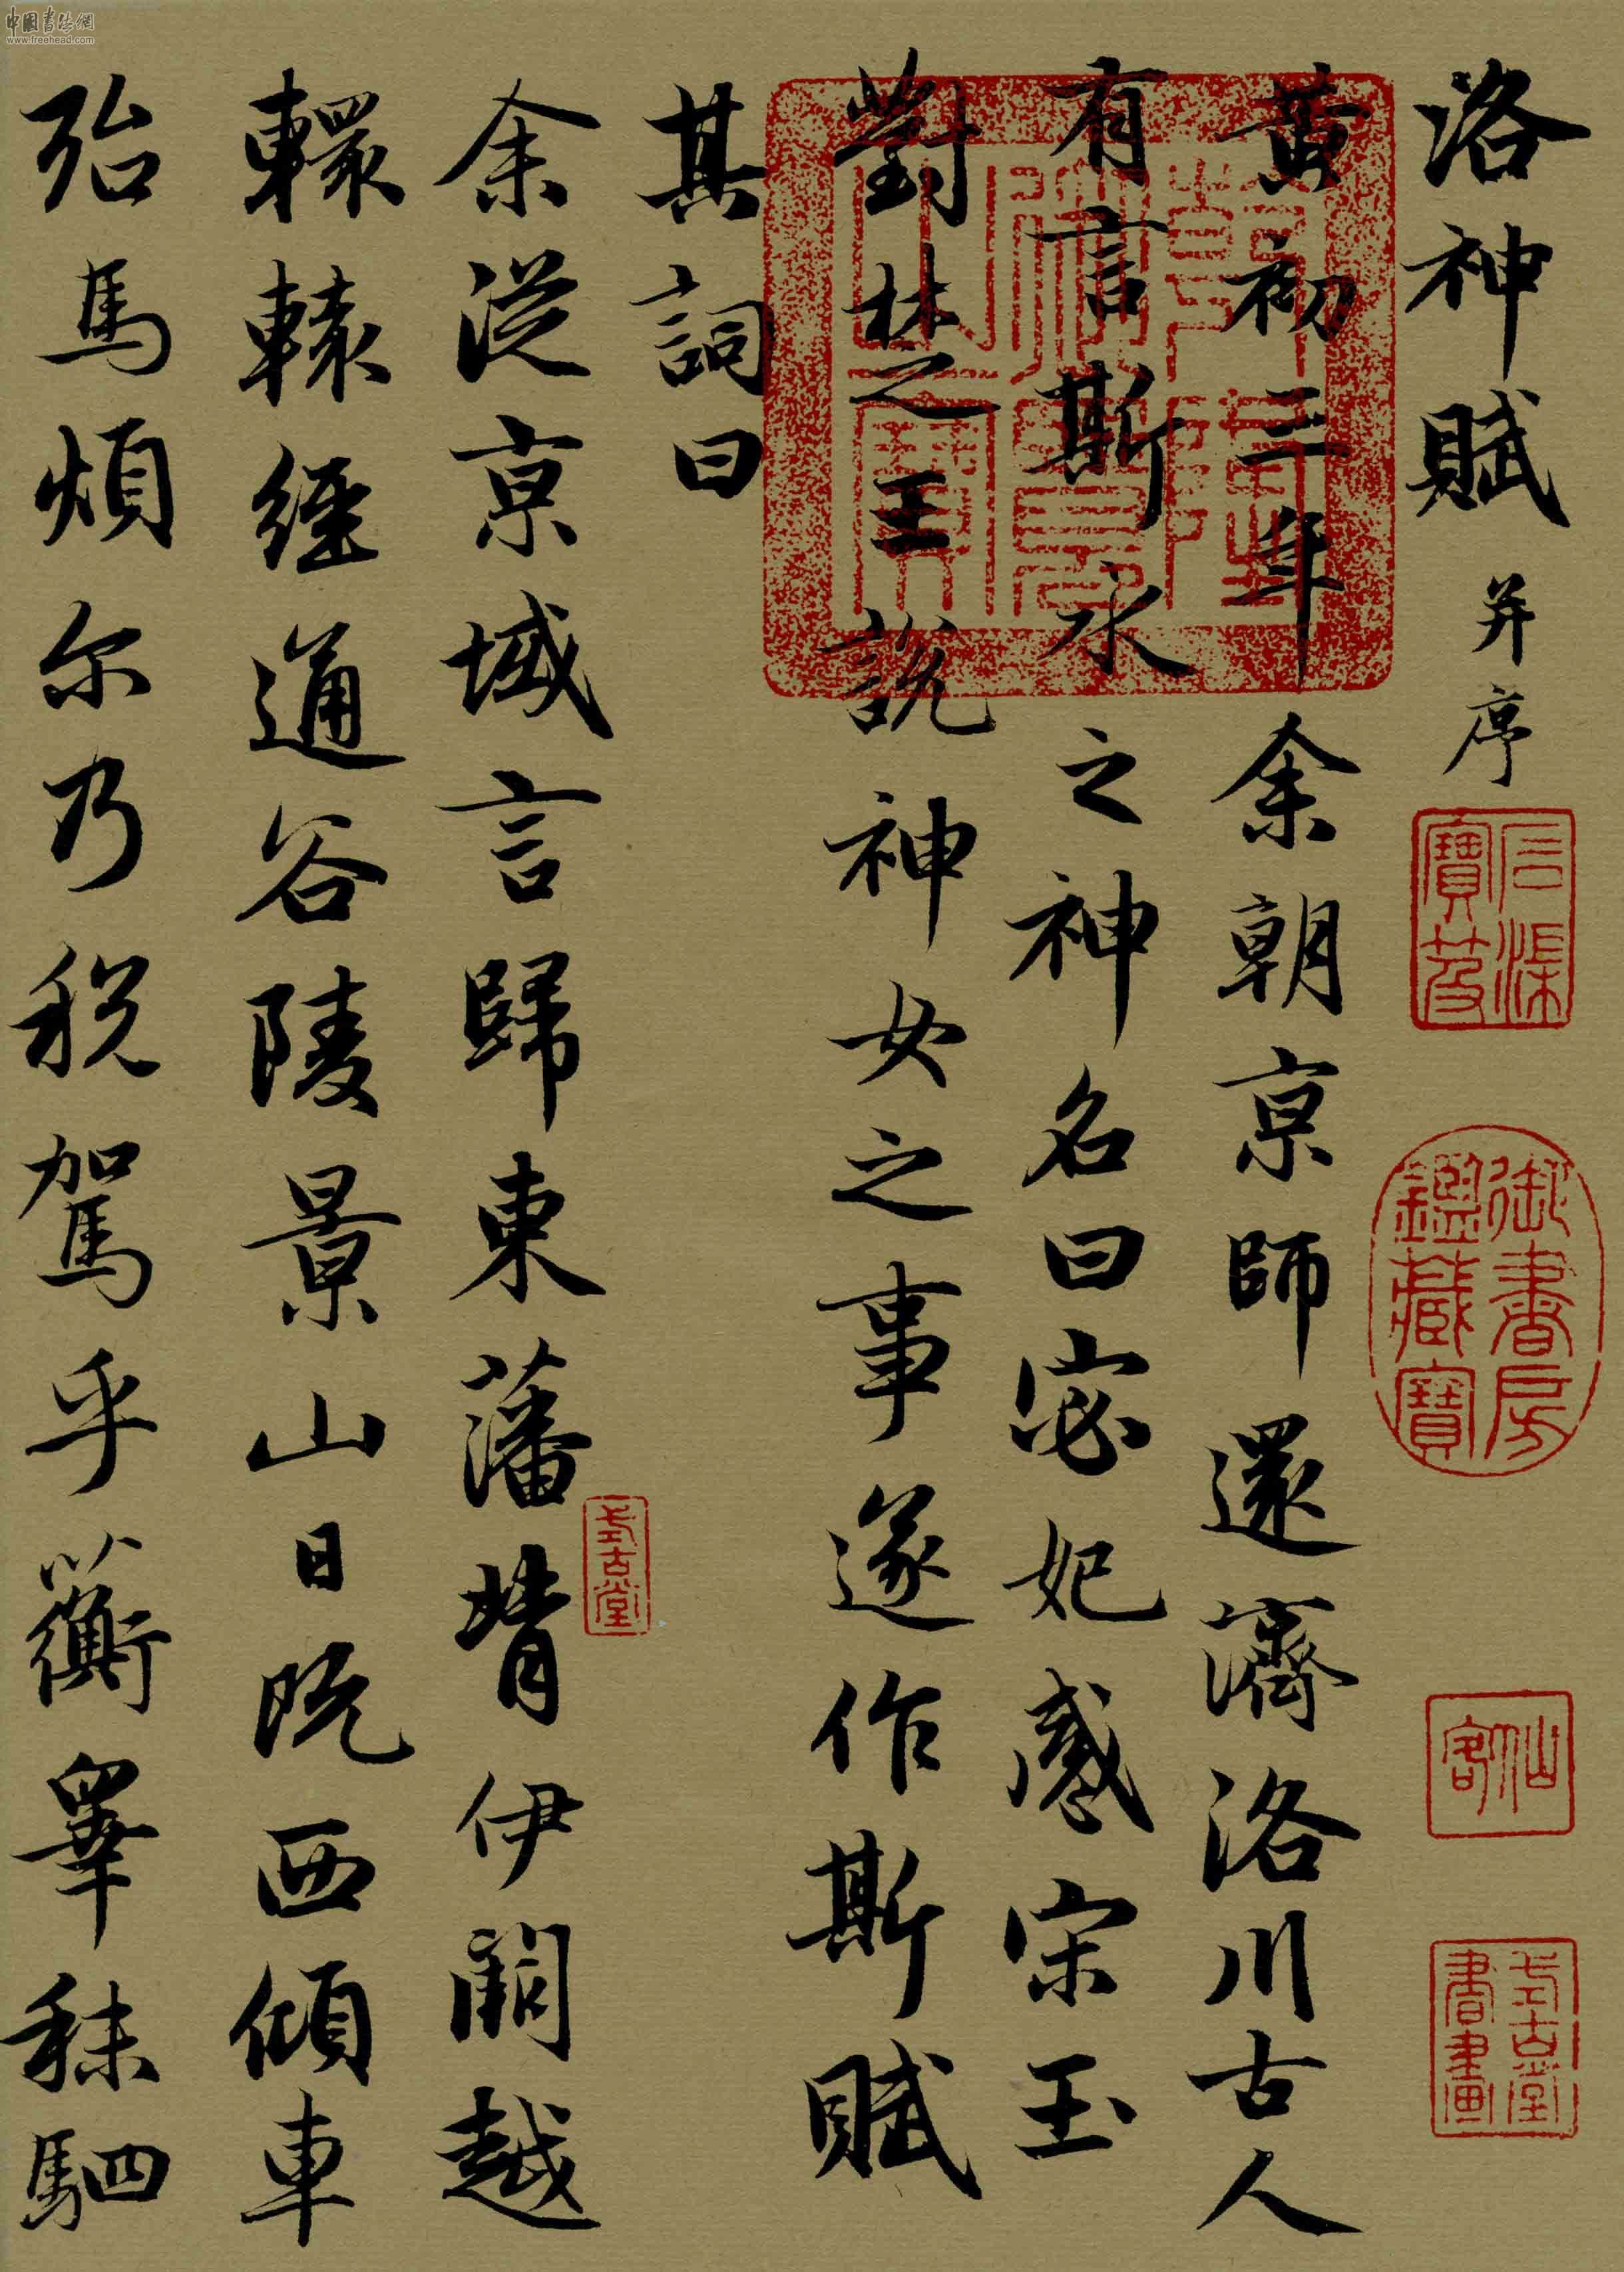 洛神賦 并序
黃初三年余朝京師還濟洛川古人
有言斯水之神名曰宓妃感宋玉
對楚之王說神女之事遂作斯賦
其詞曰
余從京域言歸東藩背伊闕越
轘轅經通谷陵景山日既西傾車
殆馬煩尔乃税駕乎蘅皋秣駟
石渠寶笈
御書房鑑藏寶
仙客
式古堂書畫
式古堂
中國書法網
www.freehead.com